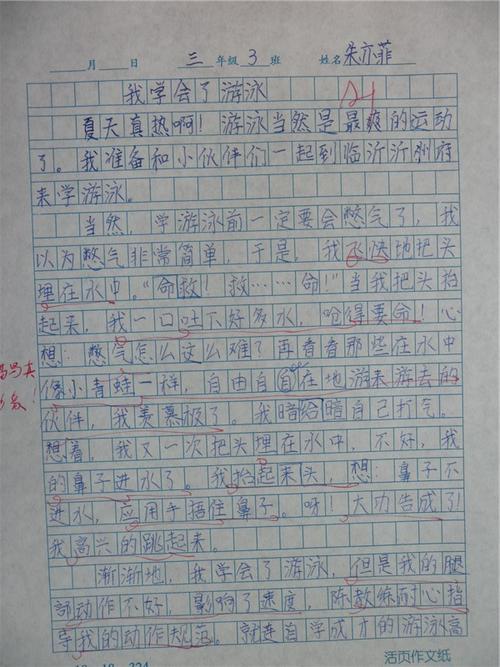 月 日 三 年级 3 班 姓名 朱亦菲
我学会了游泳
夏天真热啊！游泳当然是最爽的运动
了。我准备和小伙伴们一起到临沂沂州府
来学游泳。
当然，学游泳前一定要会憋气了，我
以为憋气非常简单，于是，我飞快地把头
埋在水中。“命救！救……命！”当我把头抬
起来，我一口吐下好多水，呛得要命！心
想：憋气怎么这么难？再看看那些在水中
像小青蛙一样，自由自在地游来游去的
伙伴，我羡慕极了。我暗给暗自己打气。
想着，我又一次把头埋在水中，不好，我
的鼻子进水了。我抬起来头，想：鼻子不
进水，应用手捂住鼻子。呀！大功告成了！
我高兴的跳起来。
渐渐地，我学会了游泳，但是我的腿
部动作不好，影响了速度，陈教练耐心指
导我的动作规范。就连自学成才的游泳高
活页作文纸